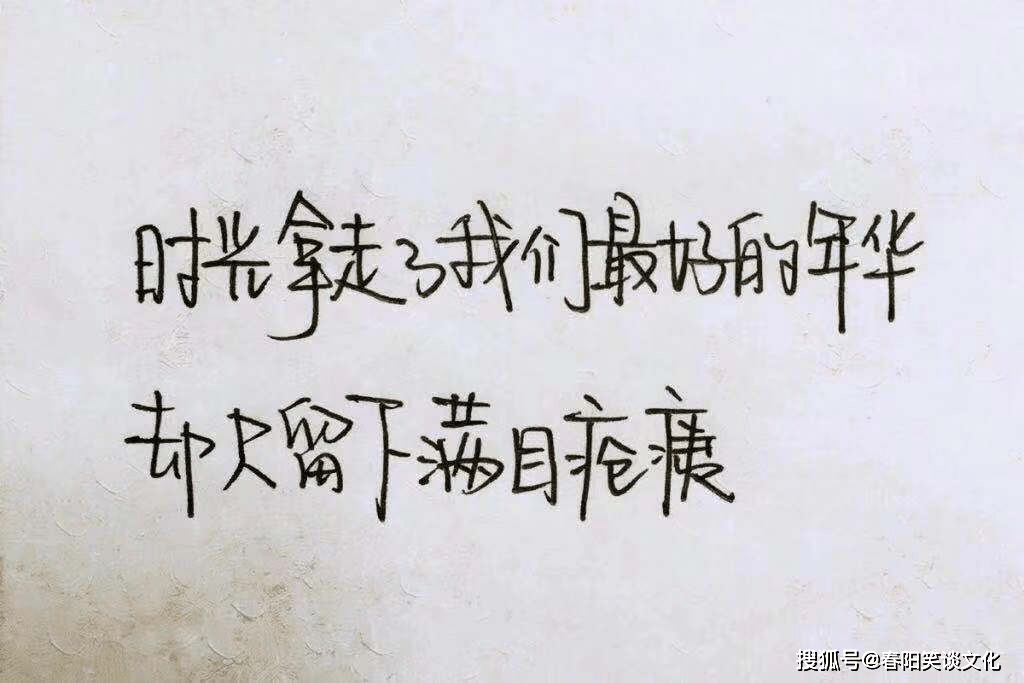 时光拿走了我们最好的年华
却只留下满目疮痍
搜狐号@春阳笑谈文化